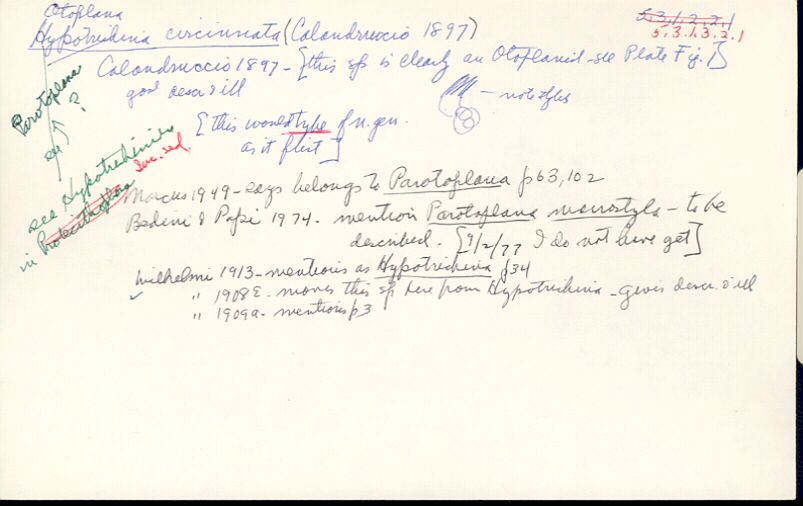 Otoplana
Hypotrichina circinnata (Calandruccio 1897)
5.3.1.2.2.1
5.3.1.3.2.1
Calandruccio 1897 - [this sp is clearly an Otoplanid - see Plate Fig. 1]
good descr & ill
- note styles
[this would type of n. gen.
as it first]
Parotoplana
?
see Hypotrichina
inc. sed.
in
Marcus 1949 - says belongs to Parotoplana p63, 102
Bedini & Papi 1974. mention Parotoplana macrostyla - to be
described. [9/2/77 I do not have yet]
Wilhelmi 1913 - mentions as Hypotrichina p34
✓ " 1908E - moves this sp here from Hypotrichina - gives descr. & ill
" 1909a - mentions p3